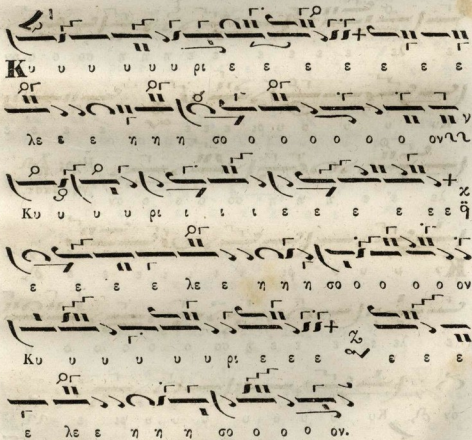 Κυ υ υ υ υ υ υ ρι ε ε ε ε ε ε ε
λε ε ε η η η σο ο ο ο ο ο ο ον
Κυ υ υ υ ρι ι ι ι ε ε ε ε ε ε ε
ε ε ε ε λε ε η η η σο ο ο ο ο ον
Κυ υ υ υ υ υ υ ρι ε ε ε ε ε ε
ε λε ε η η η σο ο ο ο ον.